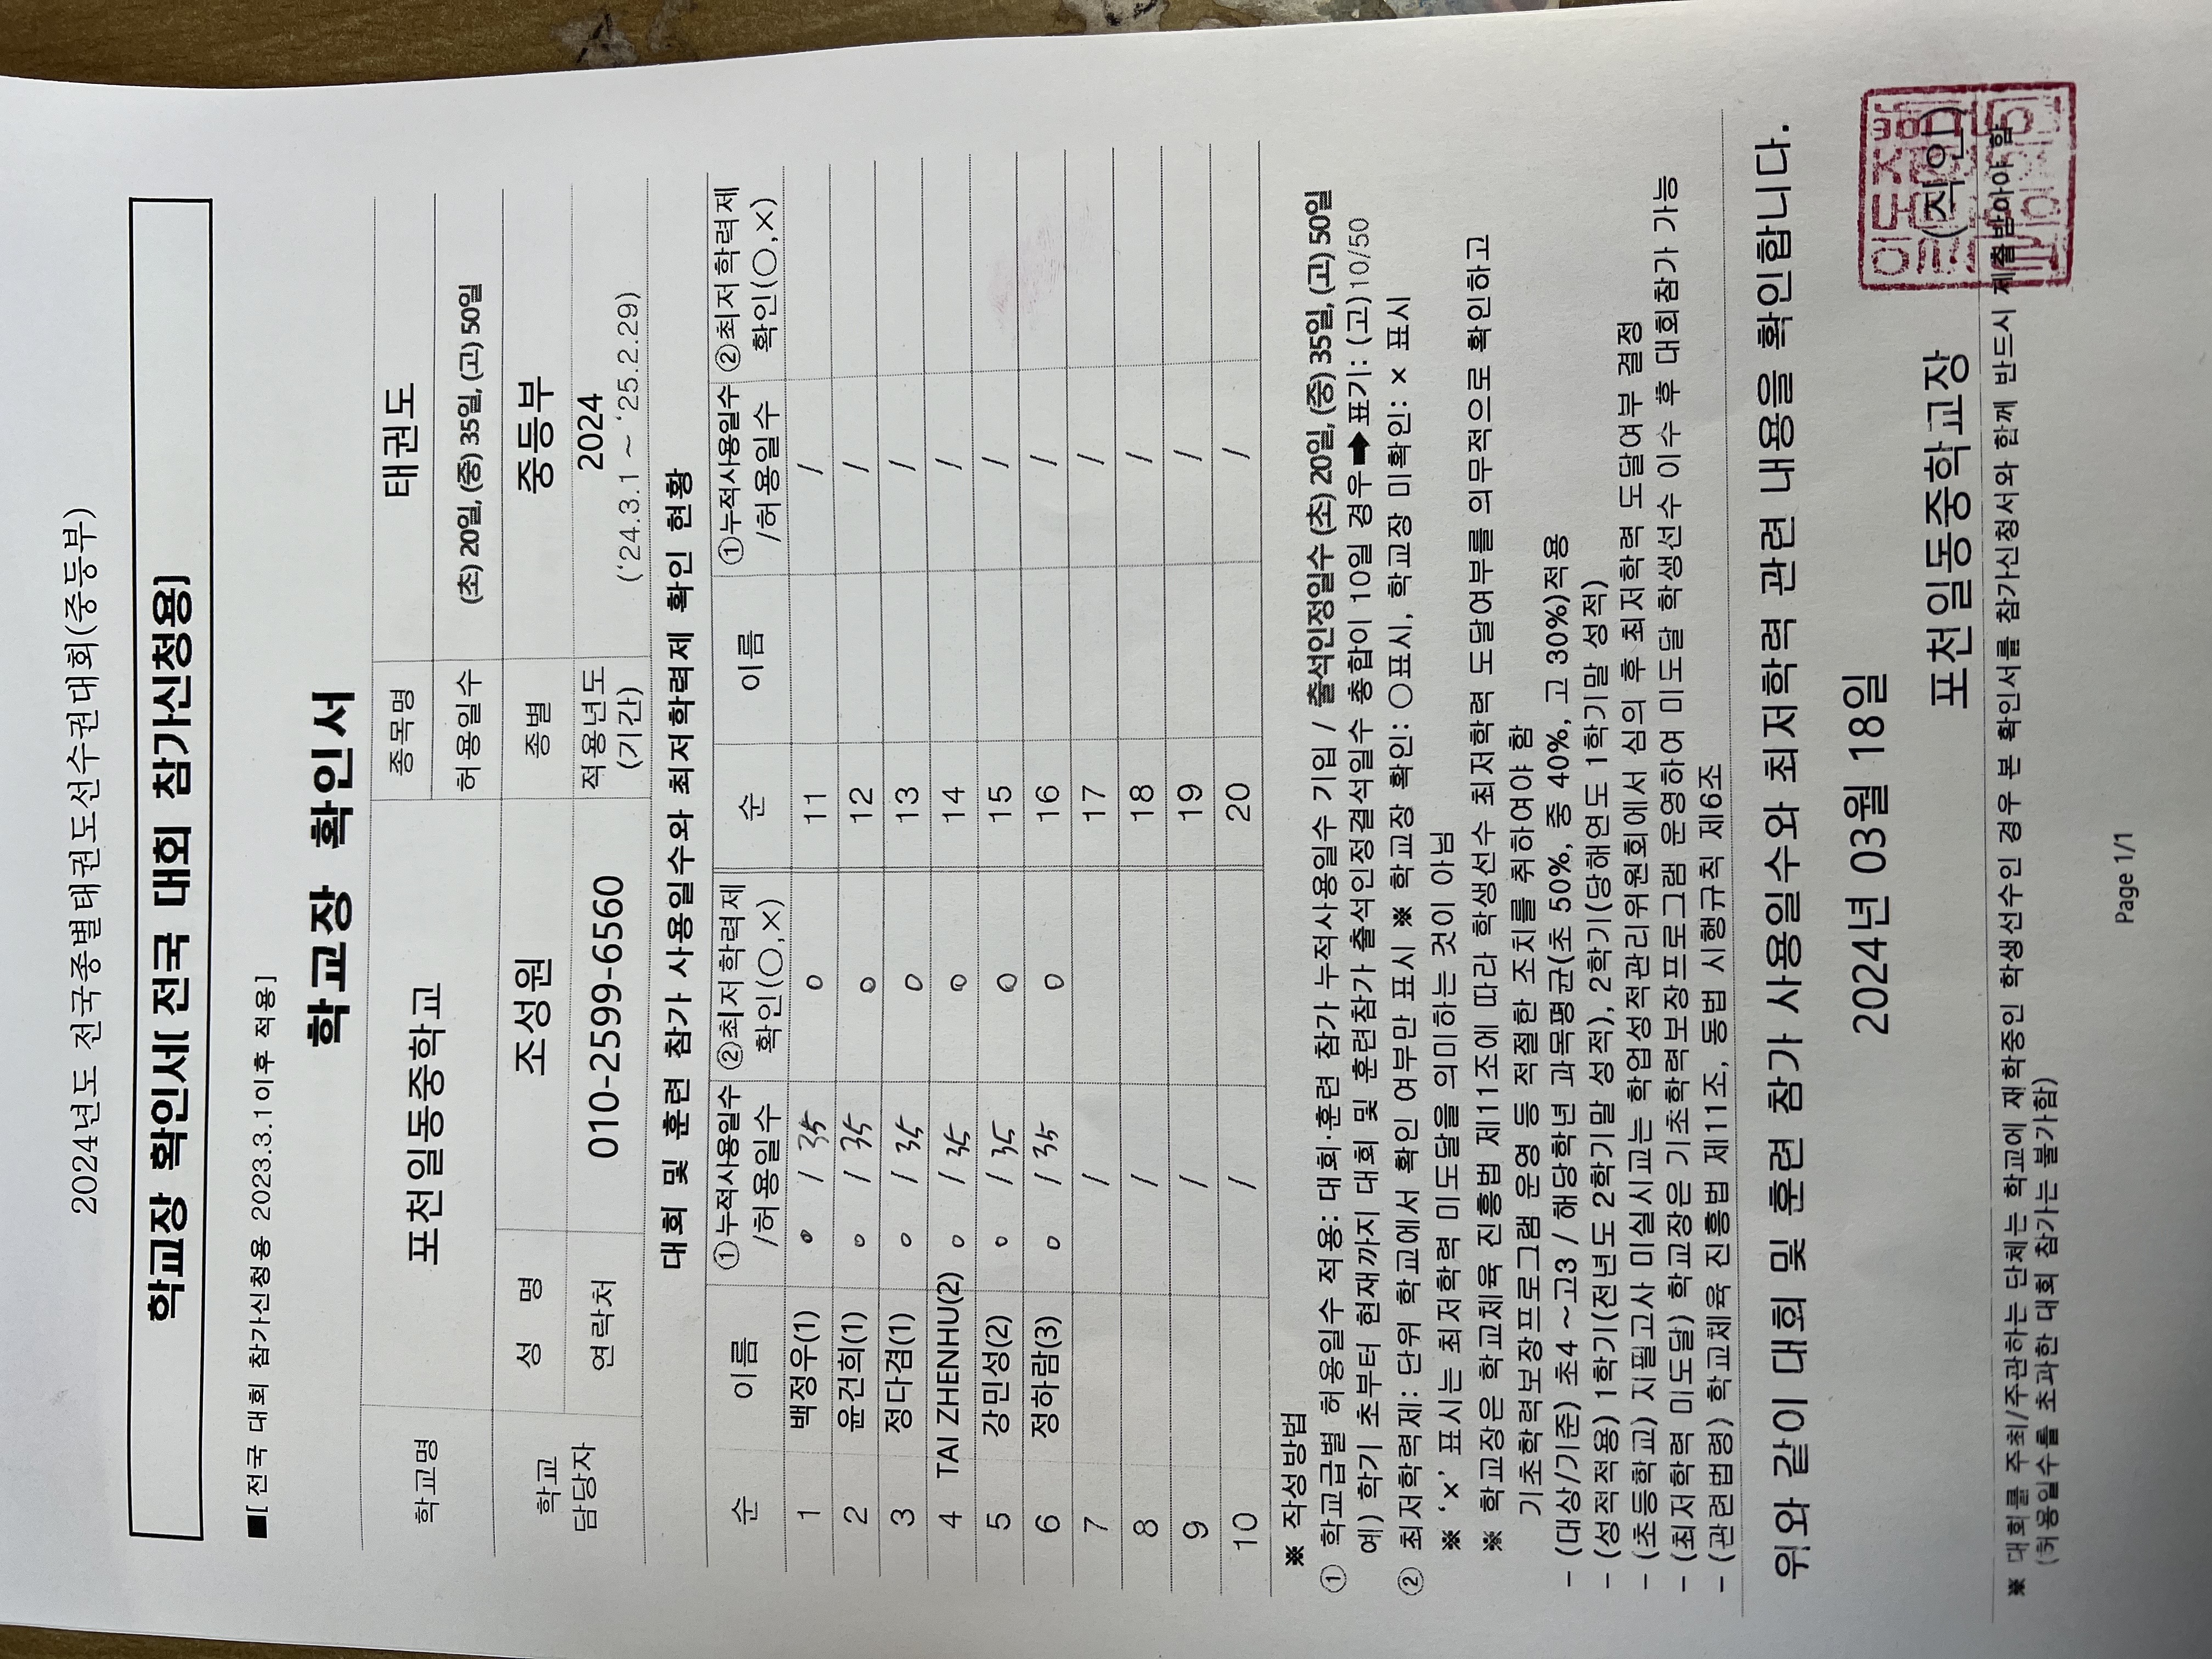 2024년도 전국종별태권도선수권대회(중등부)
학교장 확인서[ 전국 대회 참가신청용]
■[ 전국 대회 참가신청용 2023.3.1이후 적용]
학교장 확인서
학교명 포천일동중학교 종목명 태권도
허용일수 (초) 20일, (중) 35일, (고) 50일
학교 담당자 성 명 조성원 종별 중등부
연락처 010-2599-6560 적용년도 (기간) 2024 ('24.3.1 ~ '25.2.29)
대회 및 훈련 참가 사용일수와 최저학력제 확인 현황
순 이름 ①누적사용일수 /허용일수 ②최저학력제 확인(○,×) 순 이름 ①누적사용일수 /허용일수 ②최저학력제 확인(○,×)
1 백정우(1) 0 / 35 ○ 11 /
2 윤건희(1) 0 / 35 ○ 12 /
3 정다겸(1) 0 / 35 ○ 13 /
4 TAI ZHENHU(2) 0 / 35 ○ 14 /
5 강민성(2) 0 / 35 ○ 15 /
6 정하람(3) 0 / 35 ○ 16 /
7 / 17 /
8 / 18 /
9 / 19 /
10 / 20 /
※ 작성방법
① 학교급별 허용일수 적용: 대회·훈련 참가 누적사용일수 기입 / 출석인정일수 (초) 20일, (중) 35일, (고) 50일
예) 학기 초부터 현재까지 대회 및 훈련참가 출석인정결석일수 총합이 10일 경우➡표기: (고)10/50
② 최저학력제: 단위 학교에서 확인 여부만 표시 ※ 학교장 확인: ○표시, 학교장 미확인: × 표시
※ '×' 표시는 최저학력 미도달을 의미하는 것이 아님
※ 학교장은 학교체육 진흥법 제11조에 따라 학생선수 최저학력 도달여부를 의무적으로 확인하고
기초학력보장프로그램 운영 등 적절한 조치를 취하여야 함
- (대상/기준) 초4 ~고3 / 해당학년 과목평균(초 50%, 중 40%, 고 30%)적용
- (성적적용) 1학기(전년도 2학기말 성적), 2학기(당해연도 1학기말 성적)
- (초등학교) 지필고사 미실시교는 학업성적관리위원회에서 심의 후 최저학력 도달여부 결정
- (최저학력 미도달) 학교장은 기초학력보장프로그램 운영하여 미도달 학생선수 이수 후 대회참가 가능
- (관련법령) 학교체육 진흥법 제11조, 동법 시행규칙 제6조
위와 같이 대회 및 훈련 참가 사용일수와 최저학력 관련 내용을 확인합니다.
2024년 03월 18일
포천일동중학교장 (직인)
※ 대회를 주최/주관하는 단체는 학교에 재학중인 학생선수인 경우 본 확인서를 참가신청서와 함께 반드시 제출받아야 함
(허용일수를 초과한 대회 참가는 불가함)
Page 1/1